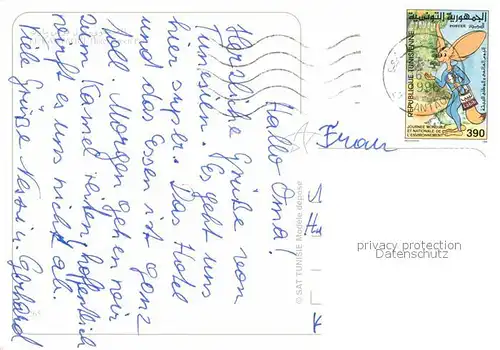 Hallo Oma!
Herzliche Grüße von
Tunesien. Es geht uns
hier super. Das Hotel
und das Essen ist ganz
toll. Morgen gehen wir
zum Kamel reiten, hoffentlich
wirft es uns nicht ab.
Viele Grüße u. Gerhard
Frau
S
© SAT TUNISIE Modèle déposé
REPUBLIQUE TUNISIENNE
الجمهورية التونسية
JOURNEE MONDIALE
ET NATIONALE DE
L'ENVIRONNEMENT
390
privacy protection
Datenschutz